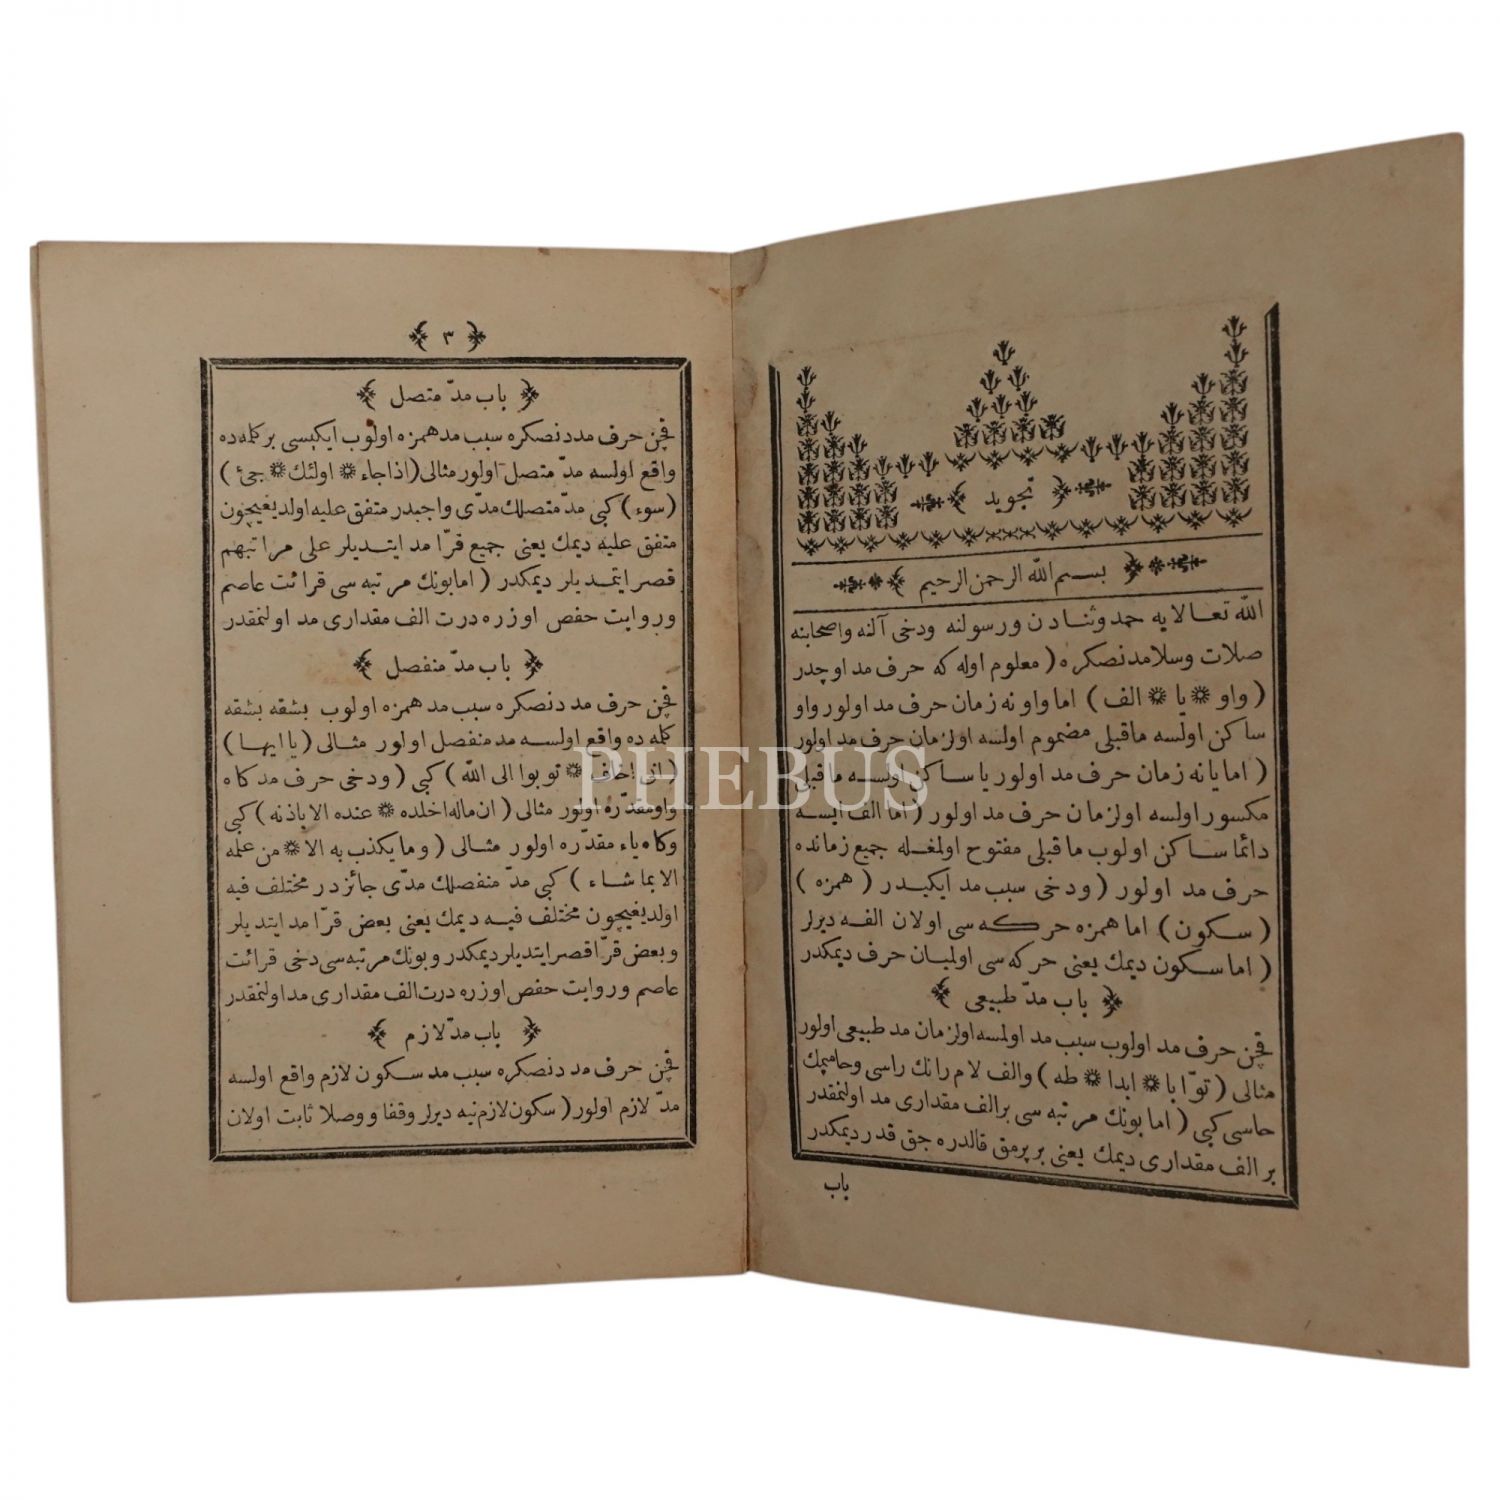 تجويد
بسم الله الرحمن الرحيم
الله تعالايه حمد وثنادن ورسولنه ودخى آلنه واصحابنه
صلات وسلامدنصكره ( معلوم اوله كه حرف مد اوچدر
( واو * يا * الف ) اما واو نه زمان حرف مد اولور واو
ساكن اولسه ماقبلى مضموم اولسه اولزمان حرف مد اولور
( اما يا نه زمان حرف مد اولور يا ساكن اولسه ماقبلى
مكسور اولسه اولزمان حرف مد اولور ( اما الف ايسه
دائما ساكن اولوب ماقبلى مفتوح اولمغله جميع زمانده
حرف مد اولور ( ودخى سبب مد ايكيدر ( همزه )
( سكون ) اما همزه حركه سى اولان الفه ديرلر
( اما سكون ديمك يعنى حركه سى اولميان حرف ديمكدر
باب مدّ طبيعى
قچن حرف مد اولوب سبب مد اولمسه اولزمان مد طبيعى اولور
مثالى ( توّابا * ابدا * طه ) والف لام رانك راسى وحاميمك
حاسى كبى ( اما بونك مرتبه سى برالف مقدارى مد اولنمقدر
بر الف مقدارى ديمك يعنى بر پرمق قالدره جق قدر ديمكدر
باب
٣
باب مدّ متصل
قچن حرف مددنصكره سبب مد همزه اولوب ايكيسى بركله ده
واقع اولسه مدّ متصل اولور مثالى ( اذا جاء * اولئك * جئ )
( سوء ) كبى مدّ متصلك مدّى واجبدر متفق عليه اولديغيچون
متفق عليه ديمك يعنى جميع قرّا مد ايتديلر على مراتبهم
قصر ايتمديلر ديمكدر ( اما بونك مرتبه سى قرائت عاصم
وروايت حفص اوزره درت الف مقدارى مد اولنمقدر
باب مدّ منفصل
قچن حرف مد دنصكره سبب مد همزه اولوب بشقه بشقه
كله ده واقع اولسه مد منفصل اولور مثالى ( يا ايها )
( انى اخاف * توبوا الى الله ) كبى ( ودخى حرف مد كاه
واومقدّره اولور مثالى ( ان ماله اخلده * عنده الا باذنه ) كبى
وكاه ياء مقدّره اولور مثالى ( وما يكذب به الا * من علمه
الا بما شاء ) كبى مدّ منفصلك مدّى جائزدر مختلف فيه
اولديغيچون مختلف فيه ديمك يعنى بعض قرّا مد ايتديلر
وبعض قرّا قصر ايتديلر ديمكدر وبونك مرتبه سى دخى قرائت
عاصم وروايت حفص اوزره درت الف مقدارى مد اولنمقدر
باب مدّ لازم
قچن حرف مد دنصكره سبب مد سكون لازم واقع اولسه
مدّ لازم اولور ( سكون لازم نيه ديرلر وقفا ووصلا ثابت اولان
PHEBUS